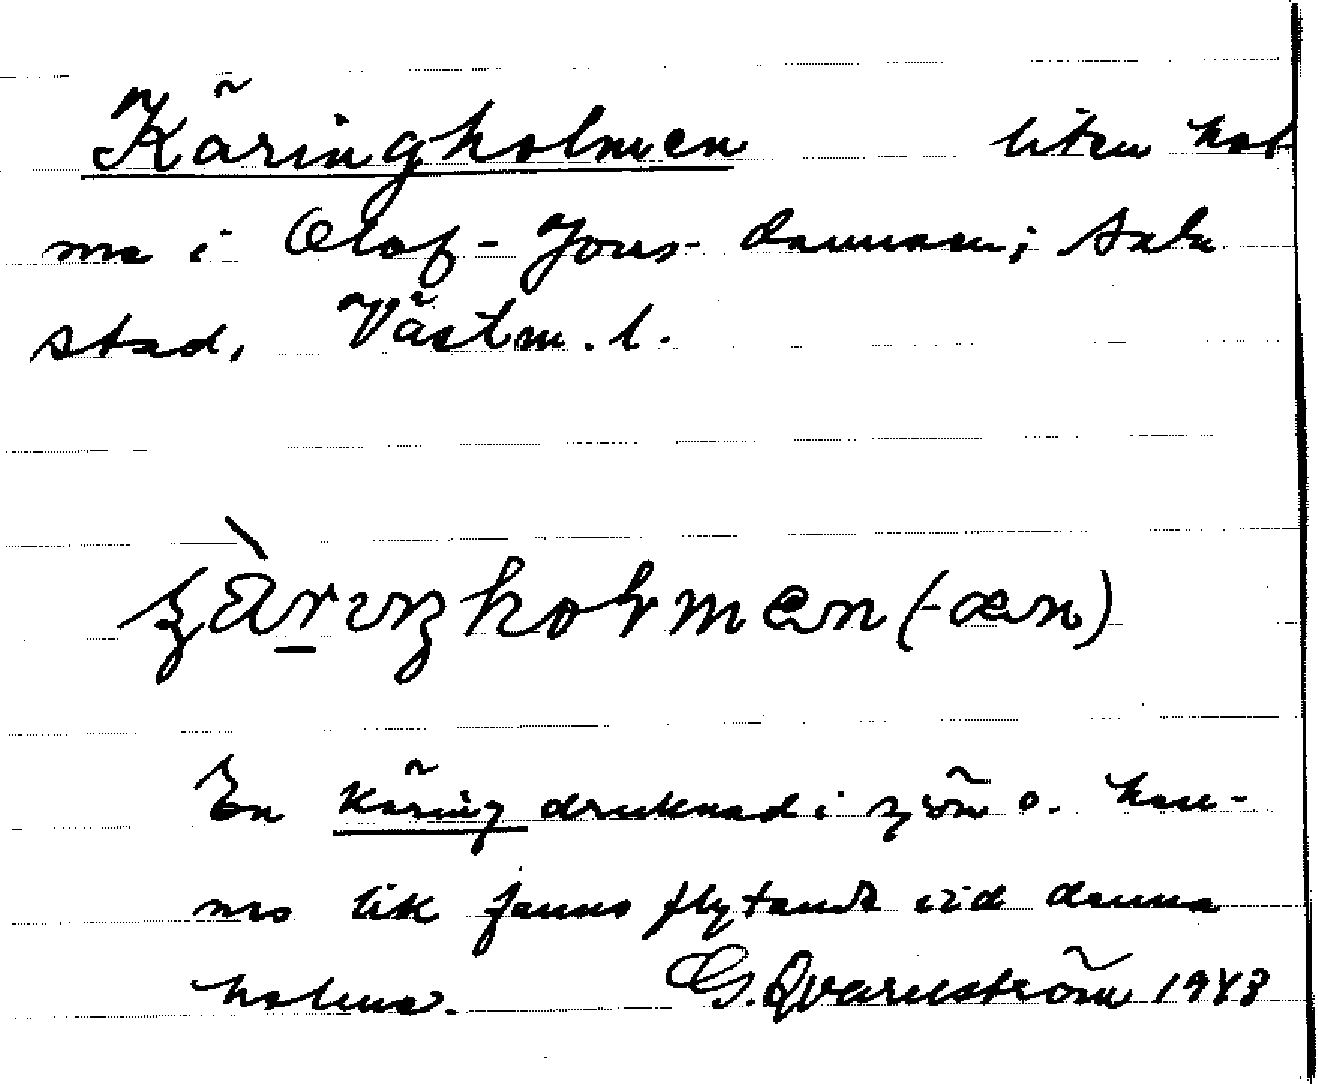 Käringholmen liten hol
me i Olof-Jons-dammen; Sala
stad, Västm. l.
käriŋholmen (-æn)
En käring drunknad i sjön o. hen-
nes lik fanns flytande vid denna
holme. G. Qvarnström 1943